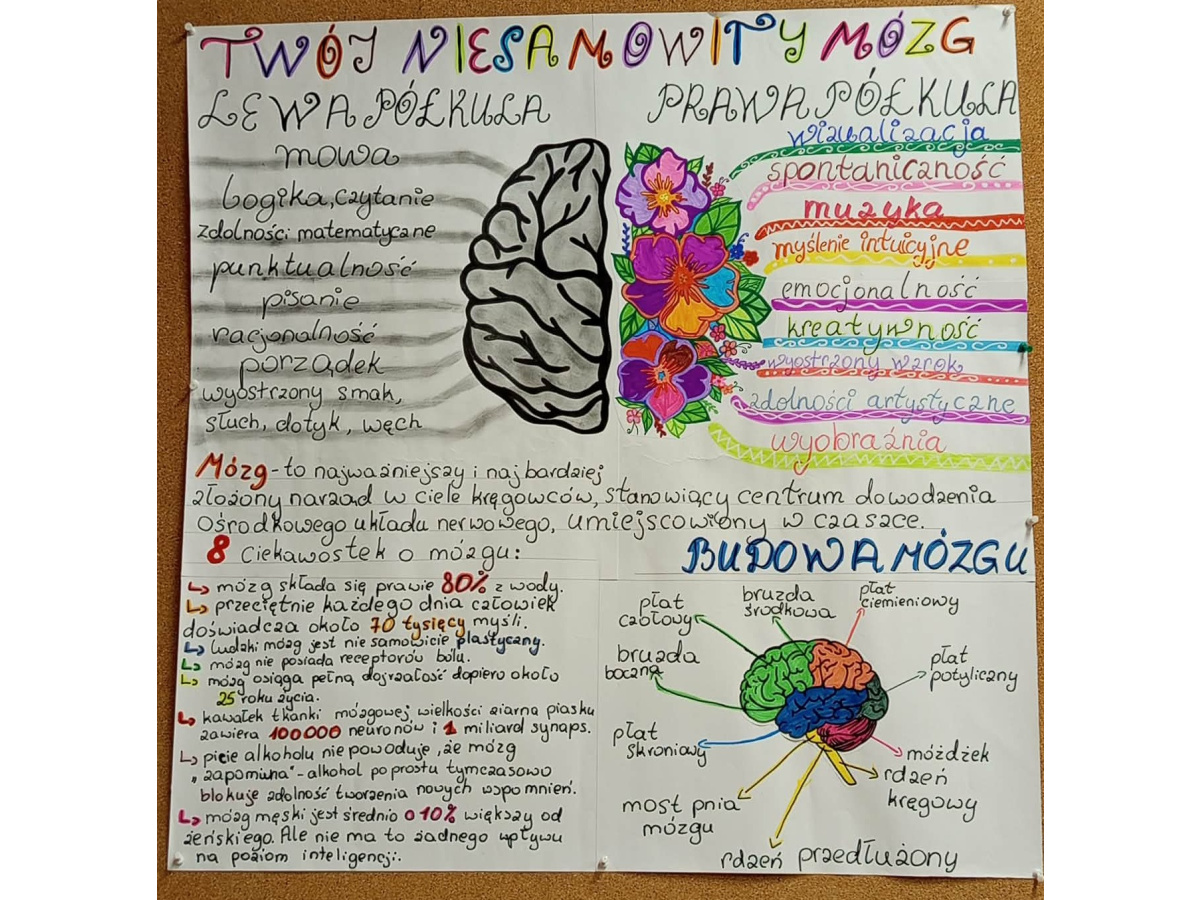 TWÓJ NIESAMOWITY MÓZG
LEWA PÓŁKULA
mowa
logika, czytanie
zdolności matematyczne
punktualność
pisanie
racjonalność
porządek
wyostrzony smak,
słuch, dotyk, węch
PRAWA PÓŁKULA
wizualizacja
spontaniczność
muzyka
myślenie intuicyjne
emocjonalność
kreatywność
wyostrzony wzrok
zdolności artystyczne
wyobraźnia
Mózg - to najważniejszy i najbardziej
złożony narząd w ciele kręgowców, stanowiący centrum dowodzenia
ośrodkowego układu nerwowego, umiejscowiony w czaszce.
8 ciekawostek o mózgu:
mózg składa się prawie 80% z wody.
przeciętnie każdego dnia człowiek
doświadcza około 70 tysięcy myśli.
ludzki mózg jest nie samowicie plastyczny.
mózg nie posiada receptorów bólu.
mózg osiąga pełną dojrzałość dopiero około
25 roku życia.
kawałek tkanki mózgowej wielkości ziarna piasku
zawiera 100000 neuronów i 1 miliard synaps.
picie alkoholu nie powoduje, że mózg
"zapomina" - alkohol po prostu tymczasowo
blokuje zdolność tworzenia nowych wspomnień.
mózg męski jest średnio o 10% większy od
żeńskiego. Ale nie ma to żadnego wpływu
na poziom inteligencji.
BUDOWA MÓZGU
płat
czołowy
bruzda
środkowa
płat
ciemieniowy
bruzda
boczna
płat
potyliczny
płat
skroniowy
móżdżek
rdzeń
kręgowy
most pnia
mózgu
rdzeń przedłużony